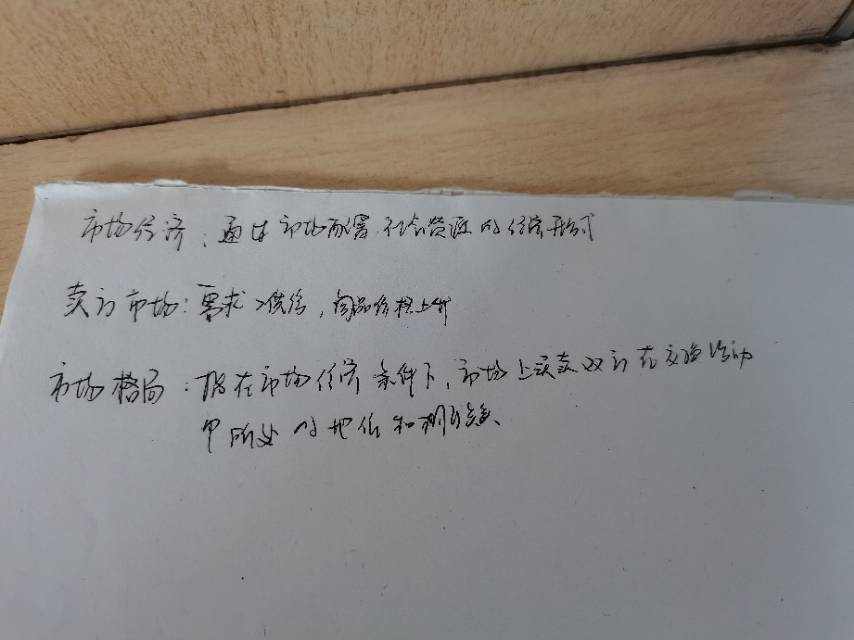 市场经济：通过市场配置社会资源的经济形式
卖方市场：需求>供给，商品价格上升
市场格局：指在市场经济条件下，市场上买卖双方在交换活动
中所处的地位和相互关系